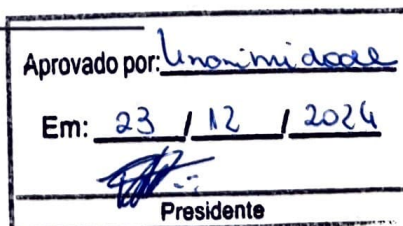 Aprovado por: Unanimidade
Em: 23 / 12 / 2024
Presidente